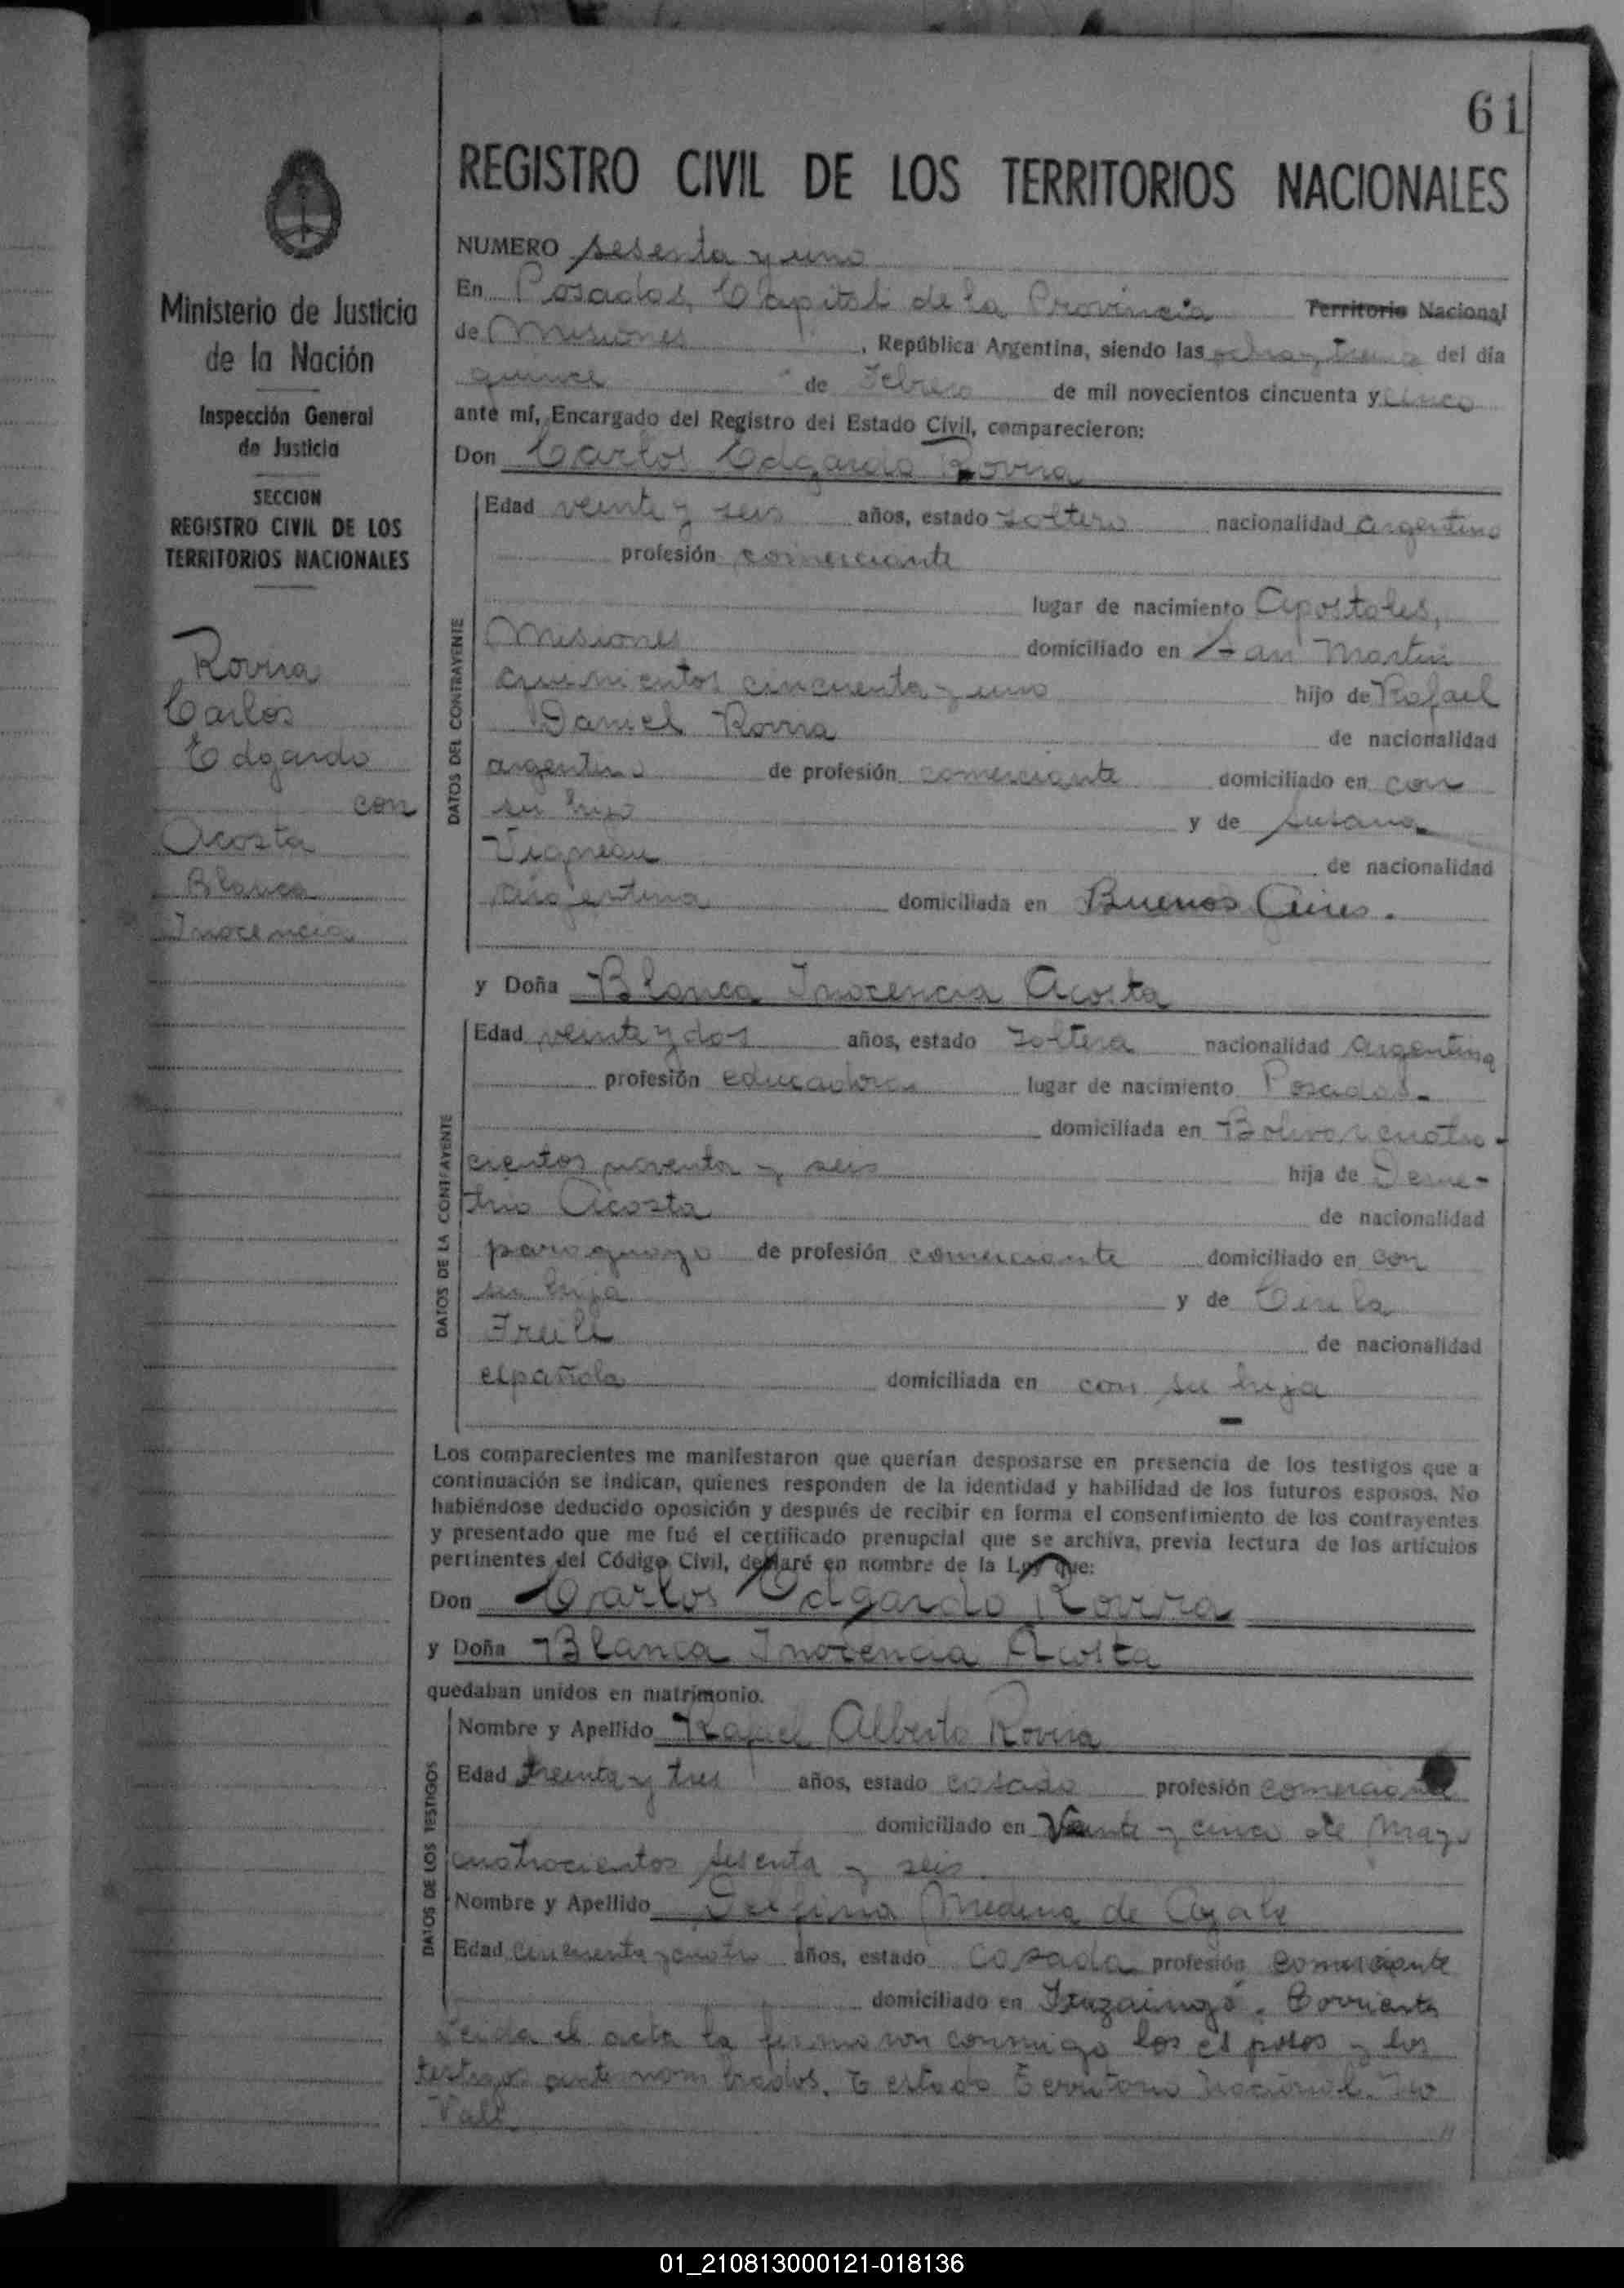 61
REGISTRO CIVIL DE LOS TERRITORIOS NACIONALES
Ministerio de Justicia
de la Nación
Inspección General
de Justicia
SECCION
REGISTRO CIVIL DE LOS
TERRITORIOS NACIONALES
Rovira
Carlos
Edgardo
con
Acosta
Blanca
Inocencia
NUMERO sesenta y uno
En Posadas, Capital de la Provincia Territorio Nacional
de Misiones, República Argentina, siendo las ocho y treinta del día
quince de Febrero de mil novecientos cincuenta y cinco
ante mí, Encargado del Registro del Estado Civil, comparecieron:
Don Carlos Edgardo Rovira
DATOS DEL CONTRAYENTE
Edad veinte y seis años, estado soltero nacionalidad argentino
profesión comerciante
lugar de nacimiento Apostoles,
Misiones domiciliado en San Martin
quinientos cincuenta y uno hijo de Rafael
Daniel Rovira de nacionalidad
argentino de profesión comerciante domiciliado en con
su hijo y de Susana
Vigneau de nacionalidad
argentina domiciliada en Buenos Aires.
y Doña Blanca Inocencia Acosta
DATOS DE LA CONTRAYENTE
Edad veinte y dos años, estado soltera nacionalidad argentina
profesión educadora lugar de nacimiento Posadas.
domiciliada en Bolivar cuatro-
cientos noventa y seis hija de Deme-
trio Acosta de nacionalidad
paraguayo de profesión comerciante domiciliado en con
su hija y de Cirila
de nacionalidad
española domiciliada en con su hija
Los comparecientes me manifestaron que querían desposarse en presencia de los testigos que a
continuación se indican, quienes responden de la identidad y habilidad de los futuros esposos. No
habiéndose deducido oposición y después de recibir en forma el consentimiento de los contrayentes
y presentado que me fué el certificado prenupcial que se archiva, previa lectura de los artículos
pertinentes del Código Civil, declaré en nombre de la Ley que:
Don Carlos Edgardo Rovira
y Doña Blanca Inocencia Acosta
quedaban unidos en matrimonio.
DATOS DE LOS TESTIGOS
Nombre y Apellido Rafael Alberto Rovira
Edad treinta y tres años, estado casado profesión comerciante
domiciliado en Veinte y cinco de Mayo
cuatrocientos sesenta y seis.
Nombre y Apellido Delfina Medina de Ayala
Edad cincuenta y cuatro años, estado casada profesión comerciante
domiciliado en Ituzaingó. Corrientes
Leida el acta la firmaron conmigo los esposos y los
testigos ante nombrados. Testado Territorio Nacional. No
Vale
01_210813000121-018136